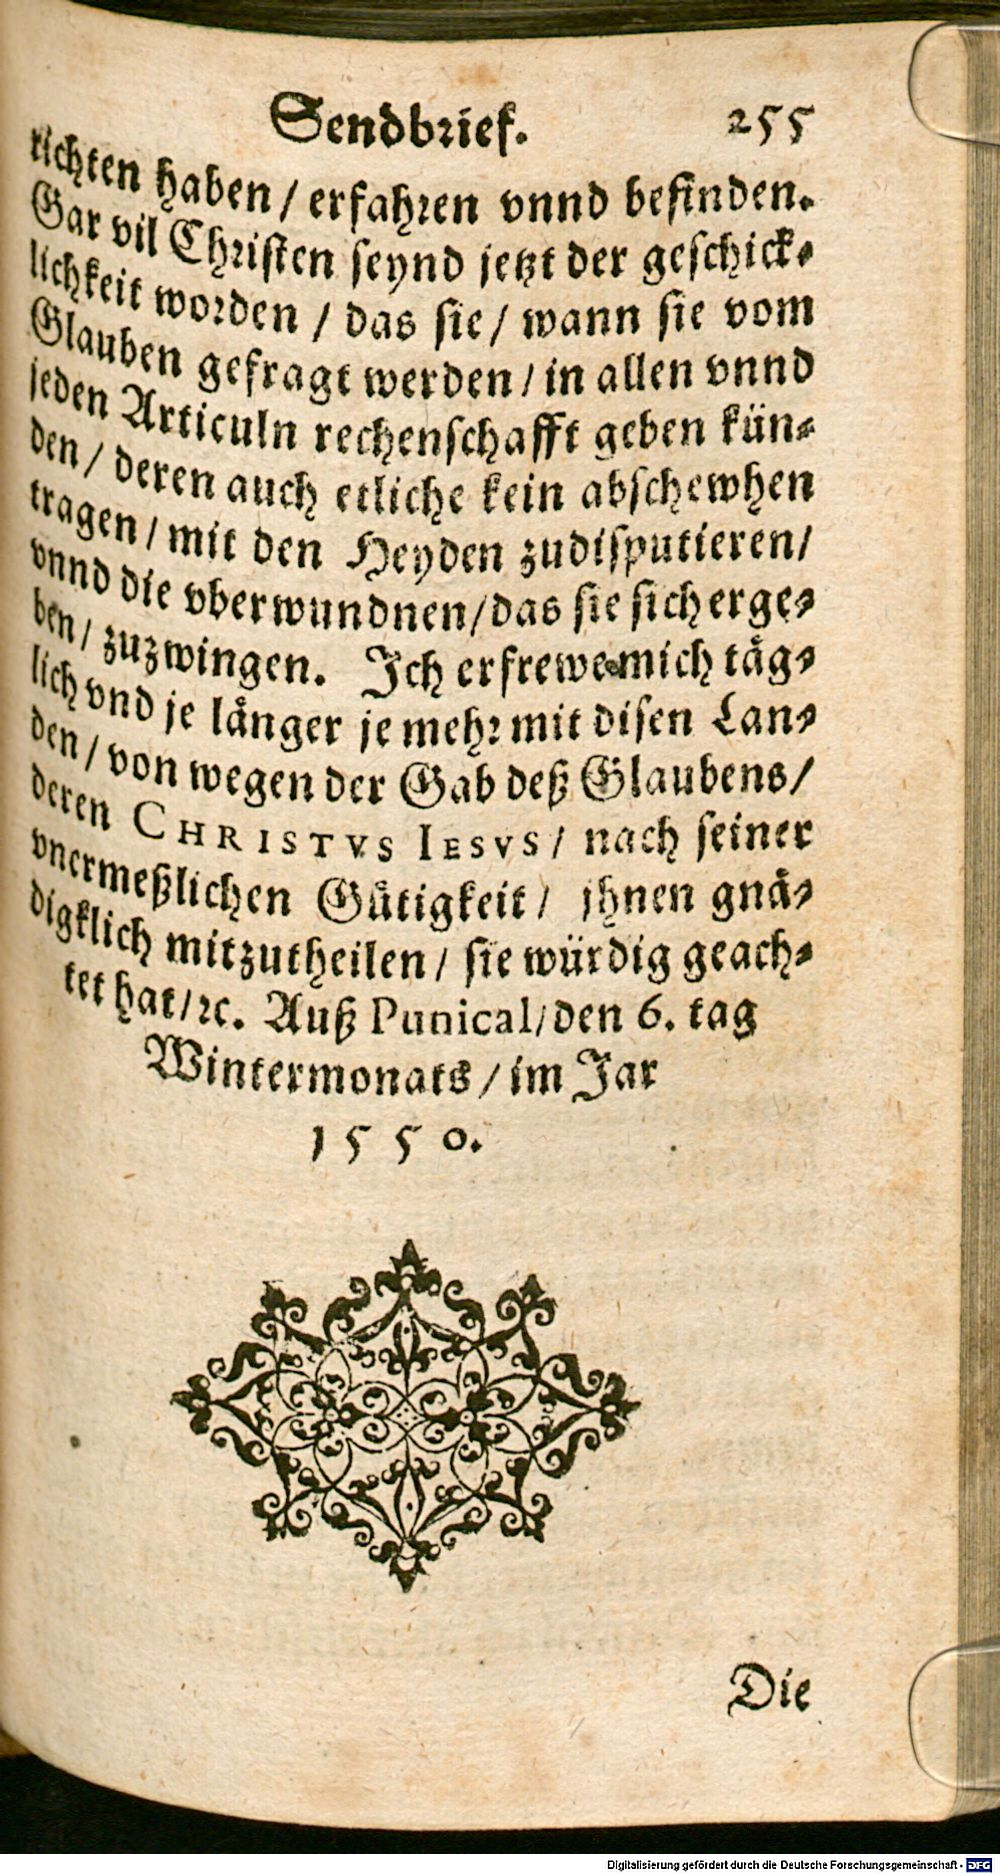 Sendbrief. 255
richten haben / erfahren vnnd befinden.
Gar vil Christen seynd jetzt der geschick⸗
lichkeit worden / das sie / wann sie vom
Glauben gefragt werden / in allen vnnd
jeden Articuln rechenschafft geben kün⸗
den / deren auch etliche kein abschewhen
tragen / mit den Heyden zudisputieren /
vnnd die vberwundnen / das sie sich erge⸗
ben / zuzwingen. Ich erfrewe mich täg⸗
lich vnd je länger je mehr mit disen Lan⸗
den / von wegen der Gab deß Glaubens /
deren CHRISTVS IESVS / nach seiner
vnermeßlichen Gütigkeit / jhnen gnä⸗
digklich mitzutheilen / sie würdig geach⸗
tet hat / ꝛc. Auß Punical / den 6. tag
Wintermonats / im Jar
1550.
Die
Digitalisierung gefördert durch die Deutsche Forschungsgemeinschaft - DFG